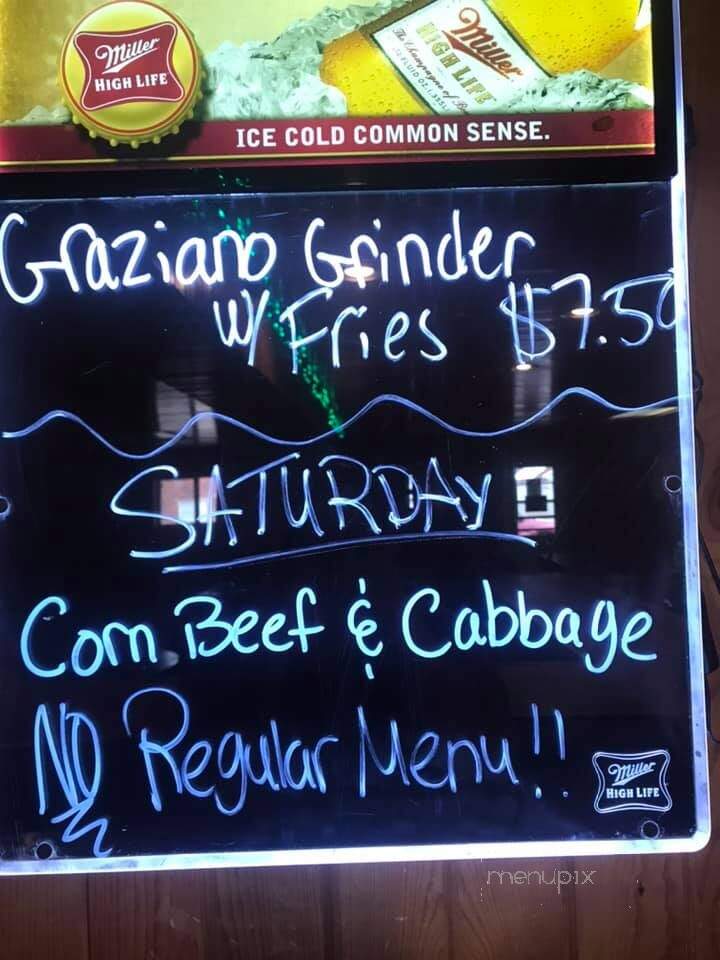 Miller
HIGH LIFE
Miller
HIGH LIFE
The Champagne of
ICE COLD COMMON SENSE.
Graziano Grinder
W/ Fries $7.50
SATURDAY
Corn Beef & Cabbage
NO Regular Menu!!
Miller
HIGH LIFE
menupix